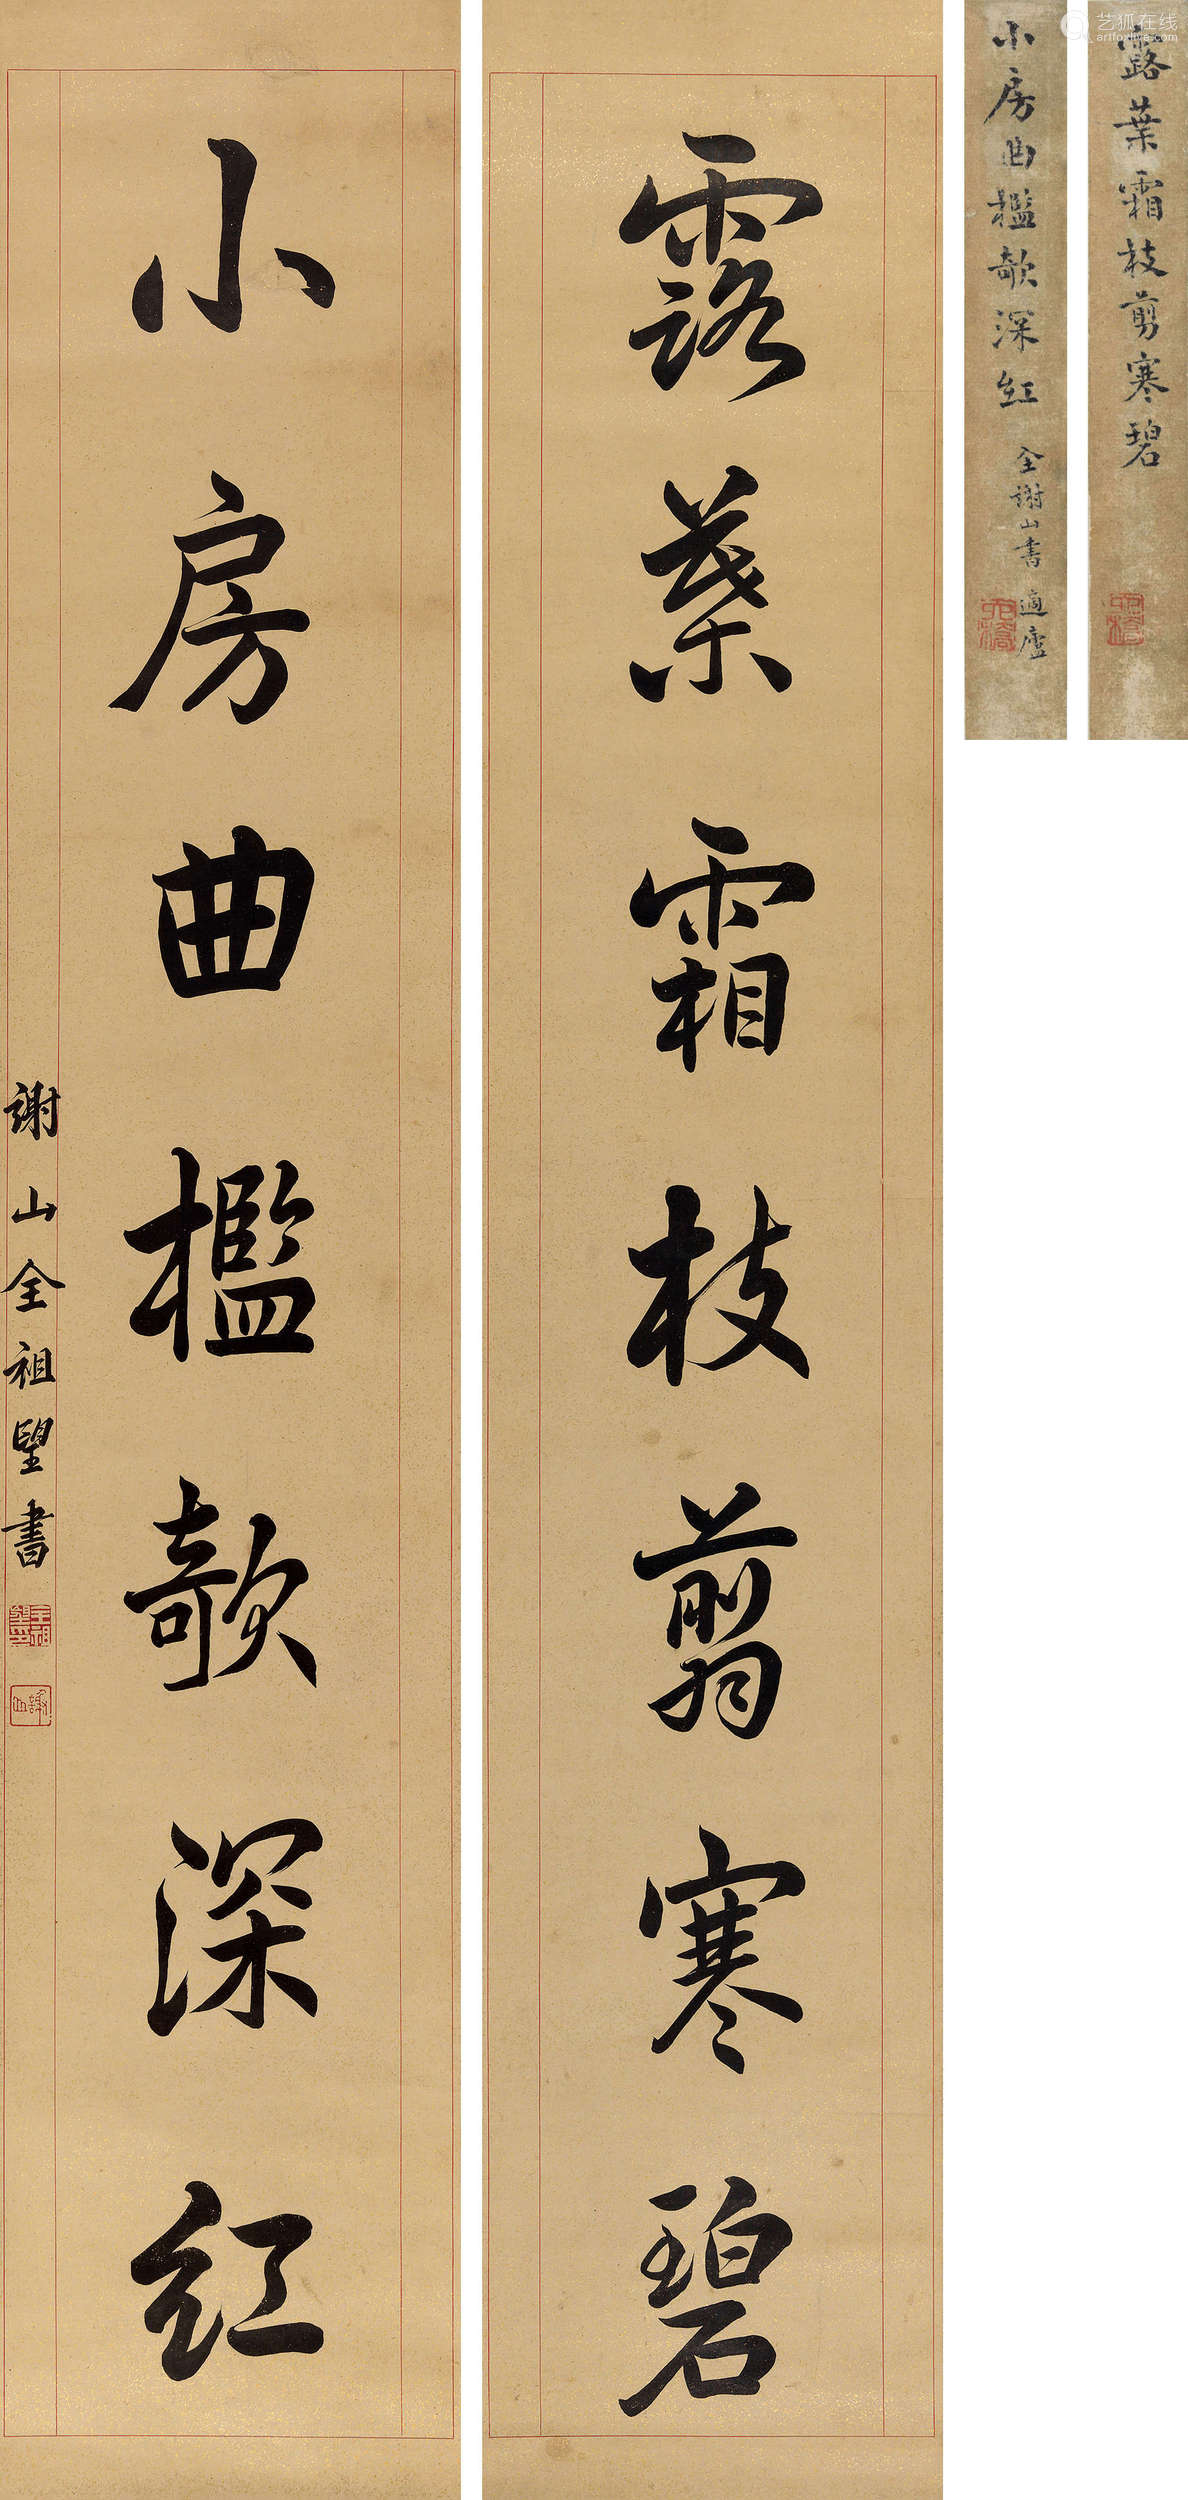 露葉霜枝剪寒碧
小房曲檻欹深紅
謝山全祖望書
全祖望印
謝山
露葉霜枝剪寒碧
小房曲檻欹深紅
全謝山書 適廬
艺狐在线
artfoxlive.com